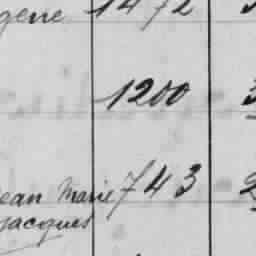 gene 1472
1200 3
ean Marie 743 2
Jacques